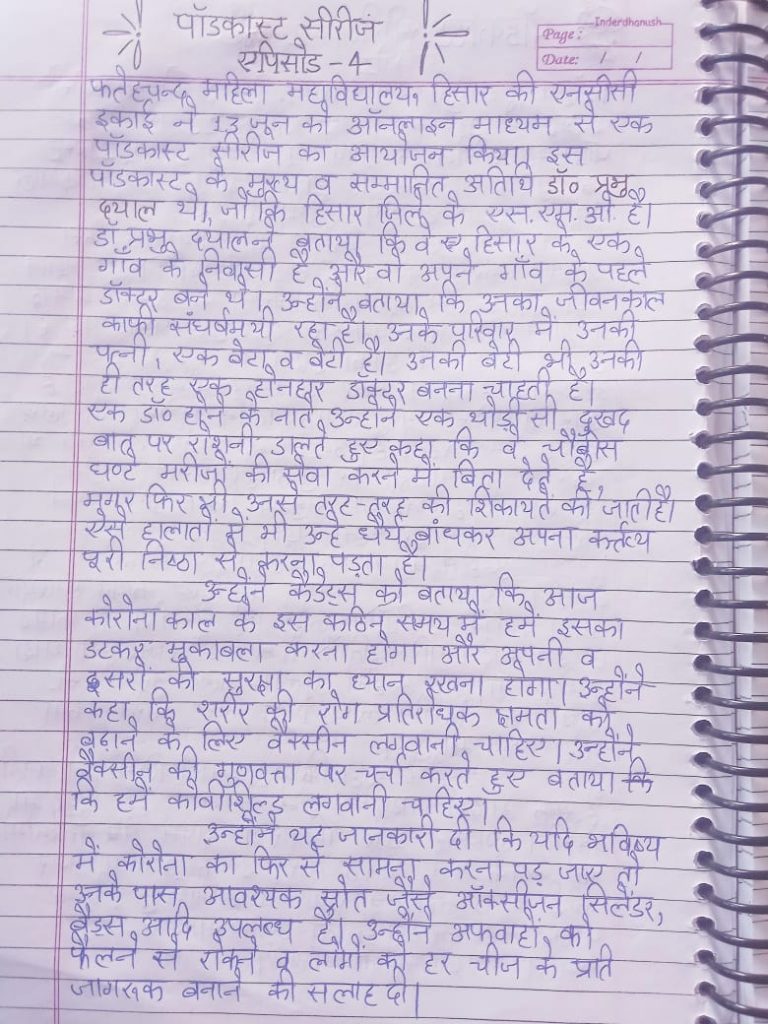 पॉडकास्ट सीरीज
एपिसोड - 4
Inderdhanush
Page:
Date: / /
फतेहचन्द महिला महाविद्यालय, हिसार की एनसीसी
इकाई ने 13 जून को ऑनलाइन माध्यम से एक
पॉडकास्ट सीरीज का आयोजन किया। इस
पॉडकास्ट के मुख्य व सम्मानित अतिथि डॉ० प्रभु
दयाल थे, जो कि हिसार जिले के एस.एम.ओ. है।
डॉ प्रभु दयाल ने बताया कि वे हिसार के एक
गाँव के निवासी है और वो अपने गाँव के पहले
डॉक्टर बने थे। उन्होंने बताया कि उनका जीवनकाल
काफी संघर्षमयी रहा है। उनके परिवार में उनकी
पत्नी, एक बेटा व बेटी है। उनकी बेटी भी उनकी
ही तरह एक होनहार डॉक्टर बनना चाहती है।
एक डॉ० होने के नाते उन्होंने एक थोड़ी सी दुखद
बात पर रोशनी डालते हुए कहा कि वे चौबीस
घण्टे मरीजों की सेवा करने में बिता देते है,
मगर फिर भी उनसे तरह-तरह की शिकायतें की जाती है।
ऐसे हालातों में भी उन्हे धैर्य बांधकर अपना कर्त्तव्य
पूरी निष्ठा से करना पड़ता है।
उन्होंने कैडेट्स को बताया कि आज
कोरोना काल के इस कठिन समय में हमें इसका
डटकर मुकाबला करना होगा और अपनी व
दूसरों की सुरक्षा का ध्यान रखना होगा। उन्होंने
कहा कि शरीर की रोग प्रतिरोधक क्षमता को
बढ़ाने के लिए वैक्सीन लगवानी चाहिए। उन्होंने
वैक्सीन की गुणवत्ता पर चर्चा करते हुए बताया कि
कि हमें कोवीशिल्ड लगवानी चाहिए।
उन्होंने यह जानकारी दी कि यदि भविष्य
में कोरोना का फिर से सामना करना पड़ जाए तो
उनके पास आवश्यक स्रोत जैसे ऑक्सीजन सिलेंडर,
बैड्स आदि उपलब्ध है। उन्होंने अफवाहों को
फैलने से रोकने व लोगों को हर चीज के प्रति
जागरूक बनाने की सलाह दी।